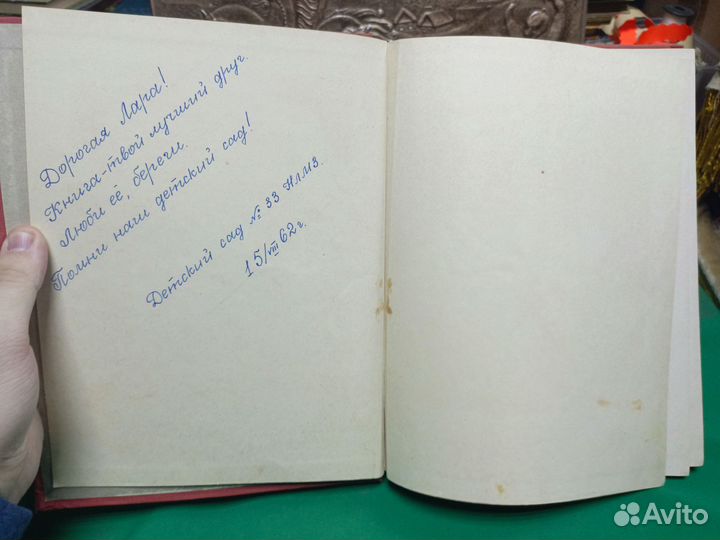 Дорогая Лара!
Книга-твой лучший друг.
Люби её, береги.
Помни наш детский сад!
Детский сад № 33 НЛМЗ.
15/VIII 62 г.
Avito